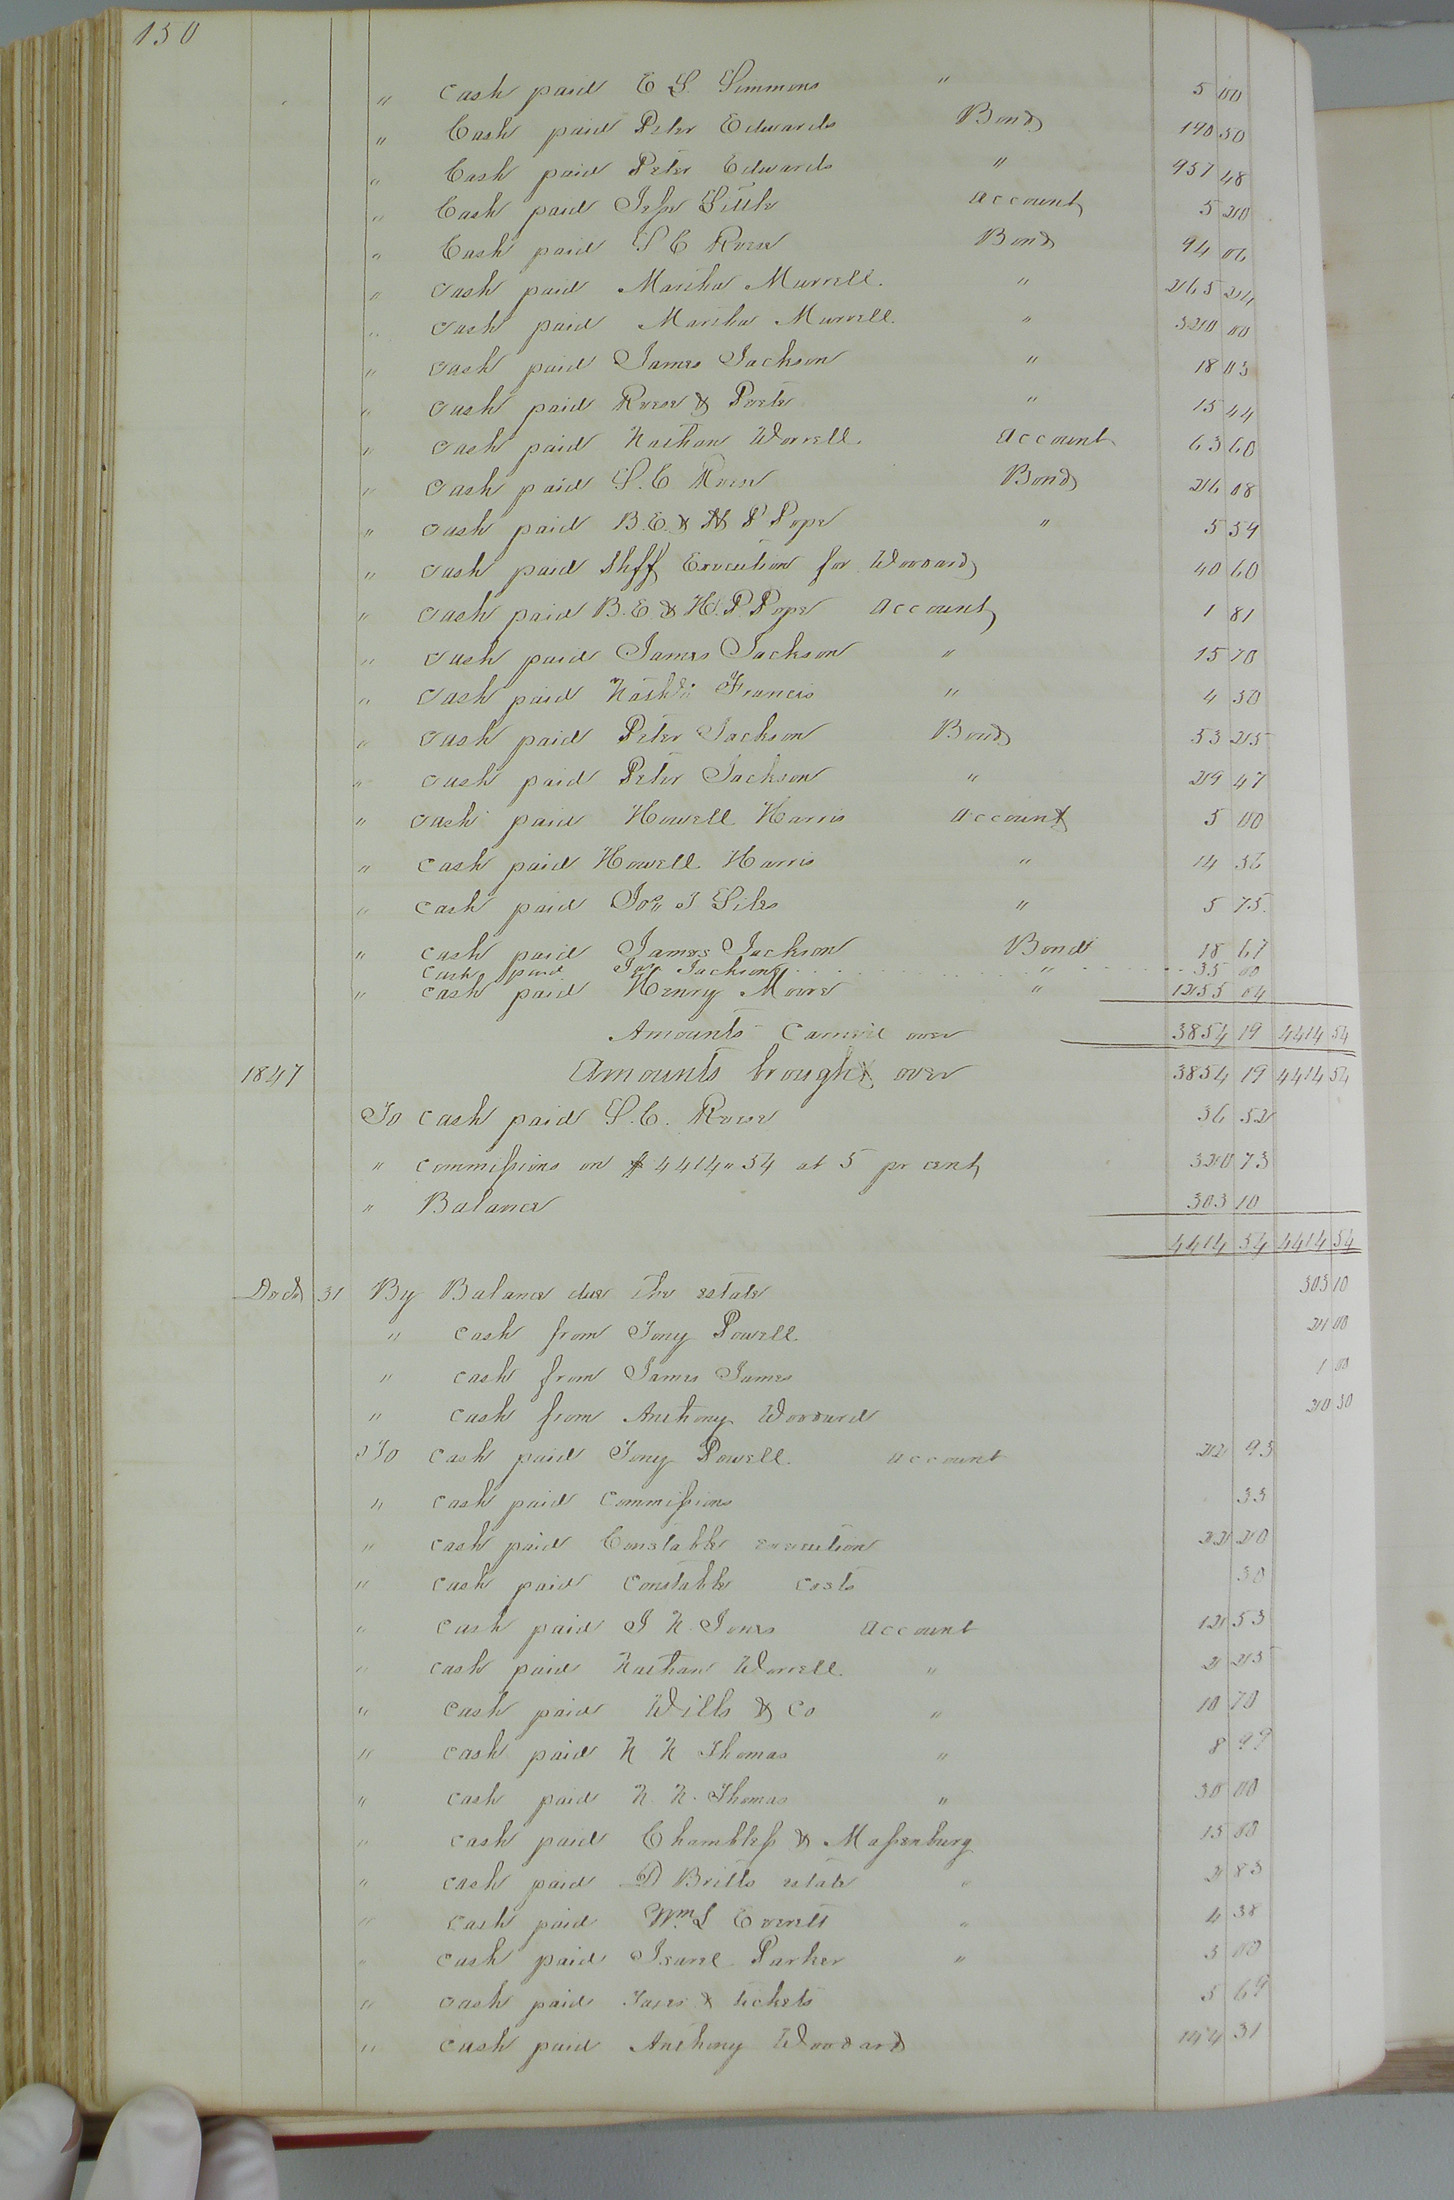 130
" Cash paid E S. Simmons " 5 00
" Cash paid Peter Edwards Bond 190 50
" Cash paid Peter Edwards " 957 48
" Cash paid Jesse Little account 5 20
" Cash paid S C Rose Bond 94 06
" Cash paid Martha Murrell. " 265 24
" Cash paid Martha Murrell. " 320 00
" Cash paid James Jackson " 18 03
" Cash paid Rose & " 15 44
" Cash paid Nathan Worrell. account 63 60
" Cash paid S. C Rose Bond 26 08
" Cash paid B. E. & H P Pope " 5 59
" Cash paid Shff Execution for Woodard 40 60
" Cash paid B. E & H. P. Pope account 1 81
" Cash paid James Jackson " 15 70
" Cash paid Francis " 4 50
" Cash paid Peter Jackson Bond 53 25
" Cash paid Peter Jackson " 29 47
" Cash paid Howell Harris account 5 00
" Cash paid Howell Harris " 14 36
" Cash paid Jos J " 5 75
" Cash paid James Jackson Bond 18 67
Cash paid Jas Jackson " 35 00
" Cash paid Henry Moore " 1255 04
Amounts Carried over 3854 19 4414 54
1847 Amounts brought over 3854 19 4414 54
To Cash paid S. C. Rose 36 52
" Commissions on $4414"54 at 5 pr cent 220 73
" Balance 303 10
4414 54 4414 54
Decr 31 By Balance due the estate 303 10
" Cash from Tony Powell. 21 00
" Cash from James James 1 00
" Cash from Anthony Woodard 20 50
To Cash paid Tony Powell. account 22 93
" Cash paid Commissions 33
" Cash paid Constable execution 22 20
" Cash paid Constable Costs 30
" Cash paid J N. Jones account 12 53
" Cash paid Nathan Worrell. " 2 25
" Cash paid Wills & Co " 10 70
" Cash paid N N Thomas " 8 99
" Cash paid N. N. Thomas " 30 00
" Cash paid Chambless & Massenburg 15 00
" Cash paid D Britts estate " 2 83
" Cash paid Wm S Everett " 4 38
" Cash paid Parker " 3 00
" Cash paid Taxes & tickets 5 69
" Cash paid Anthony Woodard 144 31